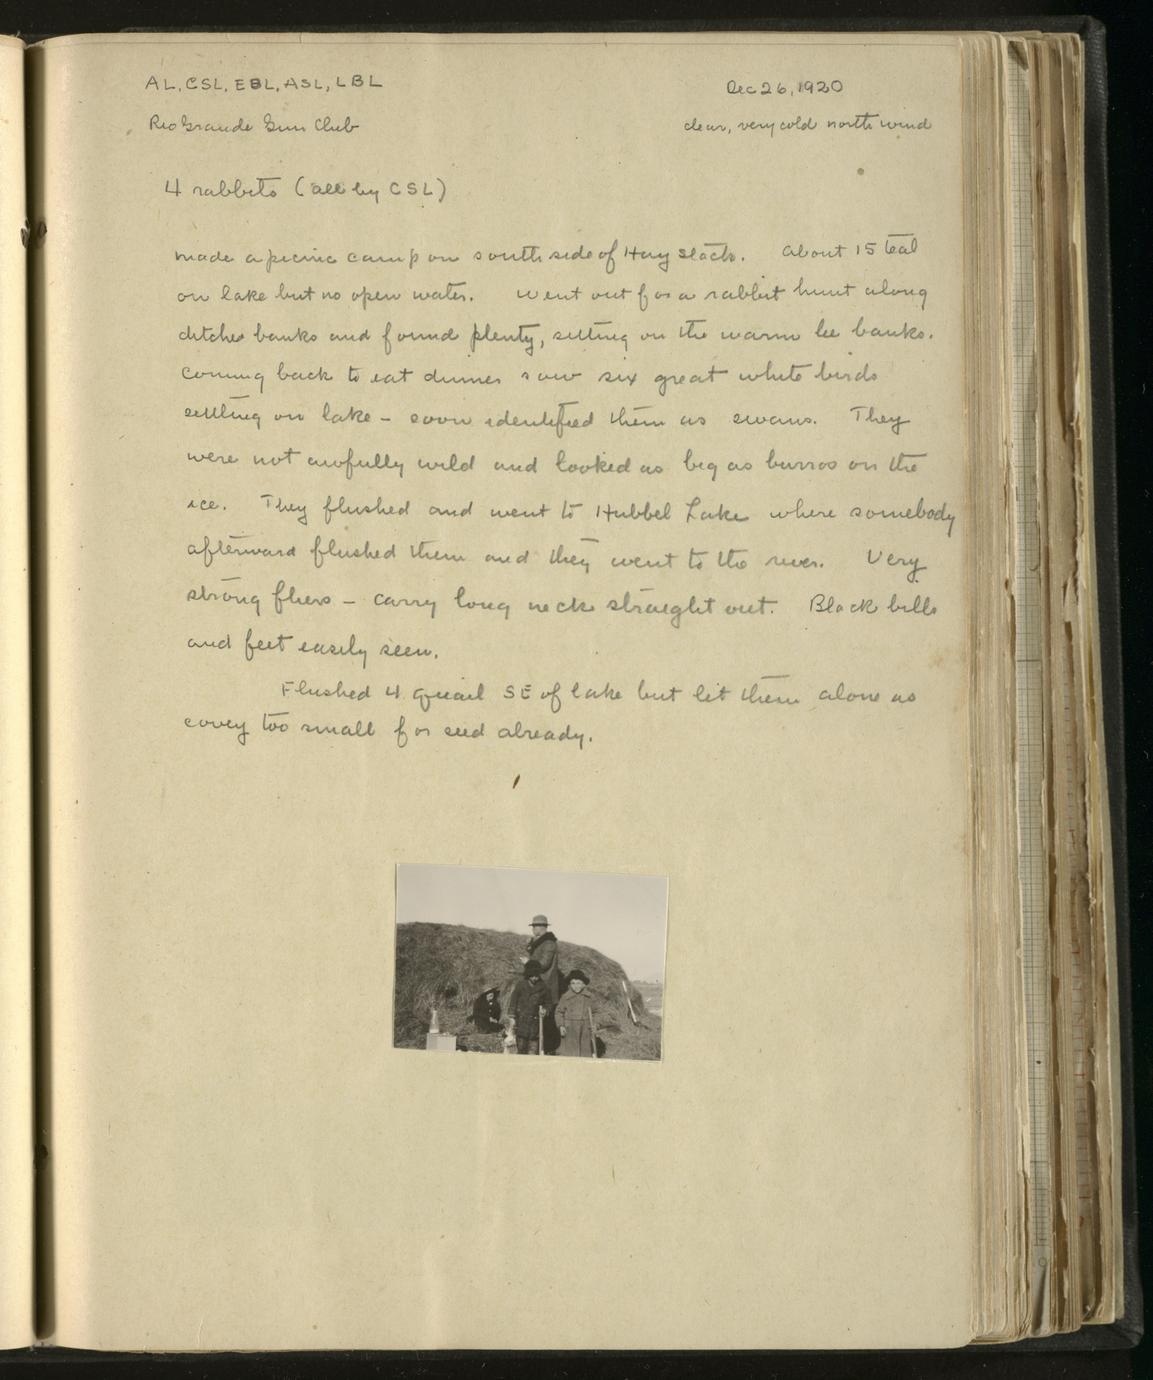 AL, CSL, EBL, ASL, LBL
Dec 26, 1920
Rio Grande Gun Club
clear, very cold north wind
4 rabbits (all by CSL)
made a picnic camp on south side of Hay Stack. About 15 teal
on lake but no open water. Went out for a rabbit hunt along
ditches banks and found plenty, sitting on the warm lee banks.
Coming back to eat dinner saw six great white birds
settling on lake - soon identified them as swans. They
were not awfully wild and looked as big as burros on the
ice. They flushed and went to Hubbel Lake where somebody
afterward flushed them and they went to the river. Very
strong fliers - carry long necks straight out. Black bills
and feet easily seen.
Flushed 4 quail SE of lake but let them alone as
covey too small for seed already.